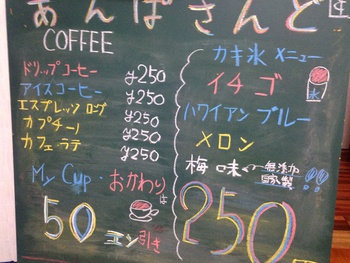 あんばさんど
COFFEE
ドリップコーヒー ¥250
アイスコーヒー ¥250
エスプレッソ ロング ¥250
カプチーノ ¥250
カフェ・ラテ ¥250
My Cup・おかわりは
50エン引き
カキ氷メニュー
イチゴ
氷
ハワイアンブルー
メロン
梅味←無添加自家製!!
250円